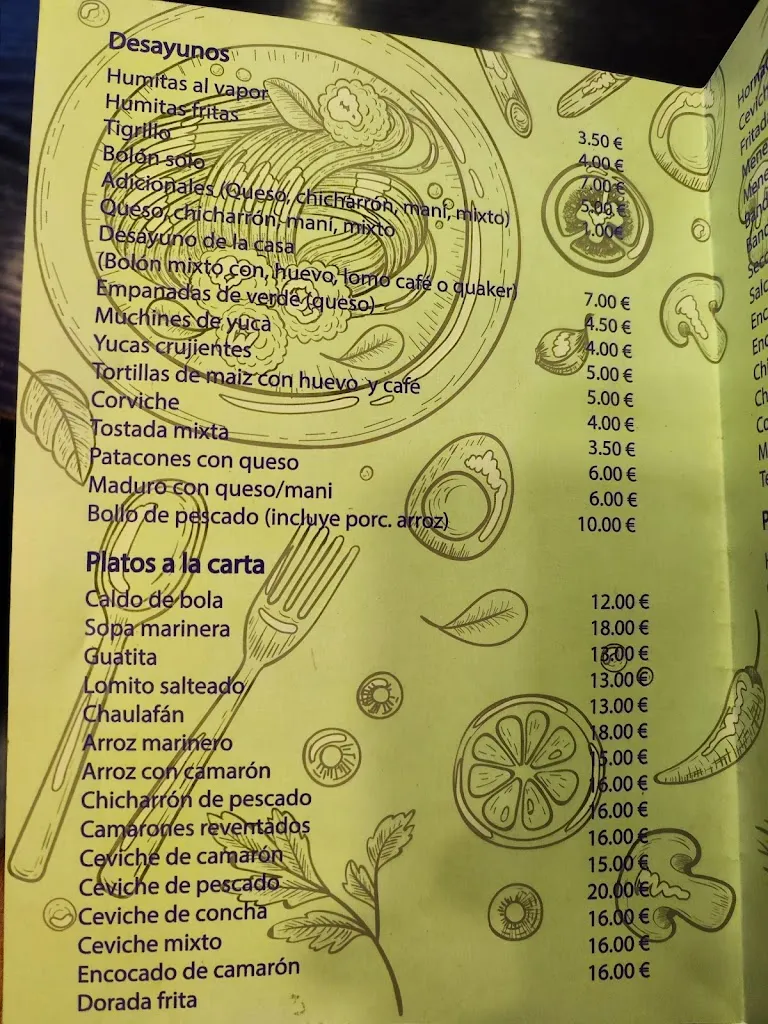 Desayunos
Humitas al vapor 3.50 €
Humitas fritas 4.00 €
Tigrillo 7.00 €
Bolón solo 5.00 €
Adicionales (Queso, chicharrón, maní, mixto) 1.00€
Queso, chicharrón, maní, mixto
Desayuno de la casa
(Bolón mixto con, huevo, lomo café o quaker) 7.00 €
Empanadas de verde (queso) 4.50 €
Muchines de yuca 4.00 €
Yucas crujientes 5.00 €
Tortillas de maiz con huevo y café 5.00 €
Corviche 4.00 €
Tostada mixta 3.50 €
Patacones con queso 6.00 €
Maduro con queso/mani 6.00 €
Bollo de pescado (incluye porc. arroz) 10.00 €
Platos a la carta
Caldo de bola 12.00 €
Sopa marinera 18.00 €
Guatita 13.00 €
Lomito salteado 13.00 €
Chaulafán 13.00 €
Arroz marinero 18.00 €
Arroz con camarón 15.00 €
Chicharrón de pescado 16.00 €
Camarones reventados 16.00 €
Ceviche de camarón 16.00 €
Ceviche de pescado 15.00 €
Ceviche de concha 20.00 €
Ceviche mixto 16.00 €
Encocado de camarón 16.00 €
Dorada frita 16.00 €